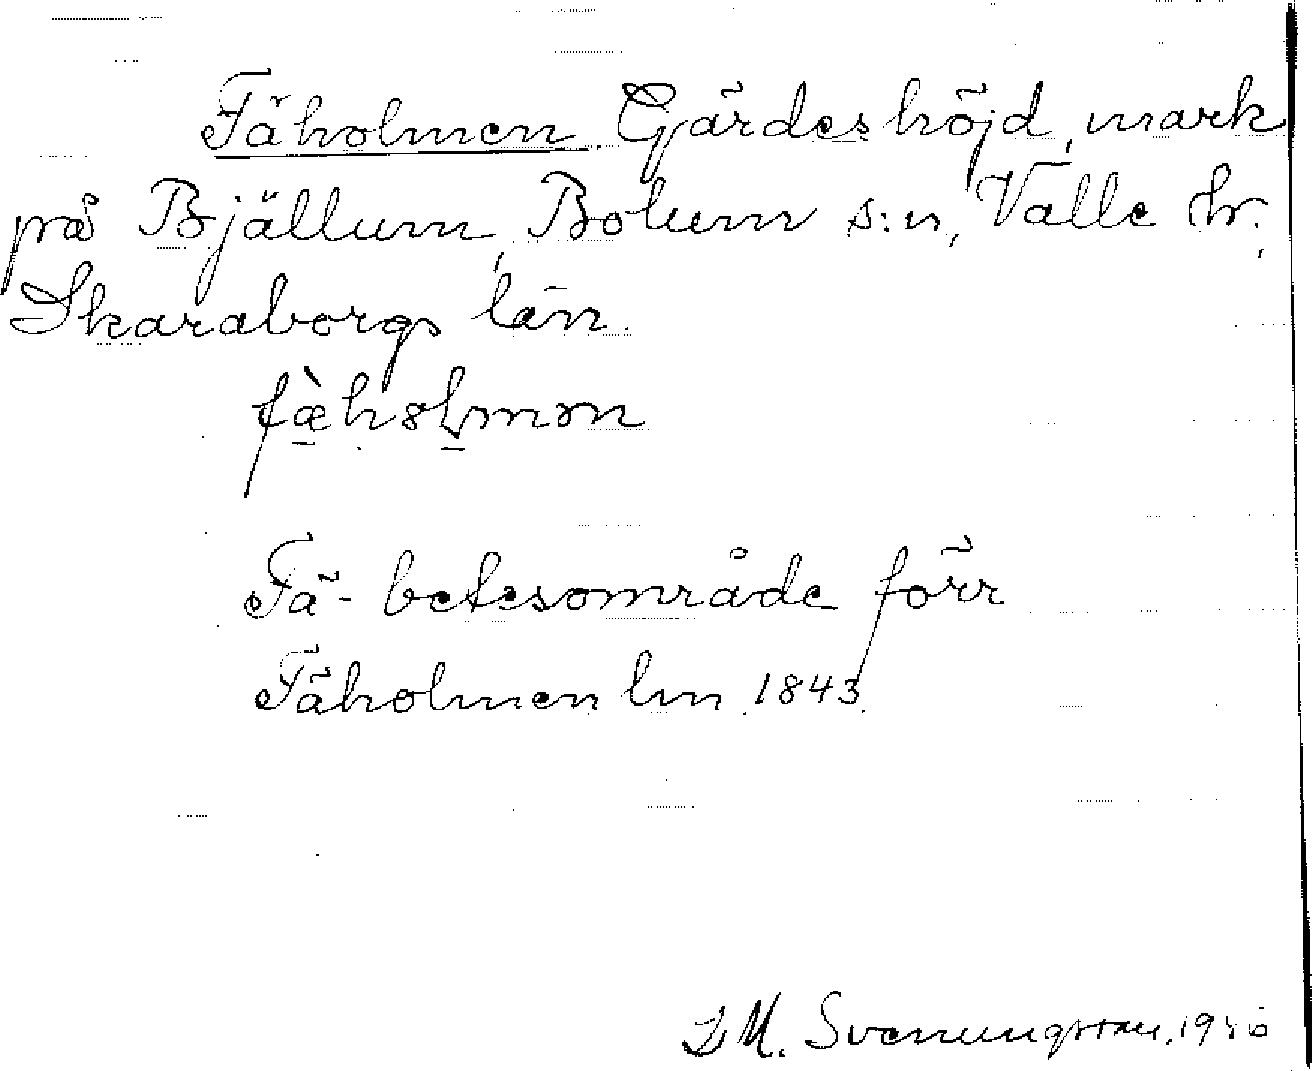 Fäholmen Gärdeshöjd, mark
på Bjällum, Bolum s:n, Valle hr.,
Skaraborgs län.
fæ̀hoḷmən
Fä- betesområde förr
Fäholmen lm 1843.
M. Svenungsson,